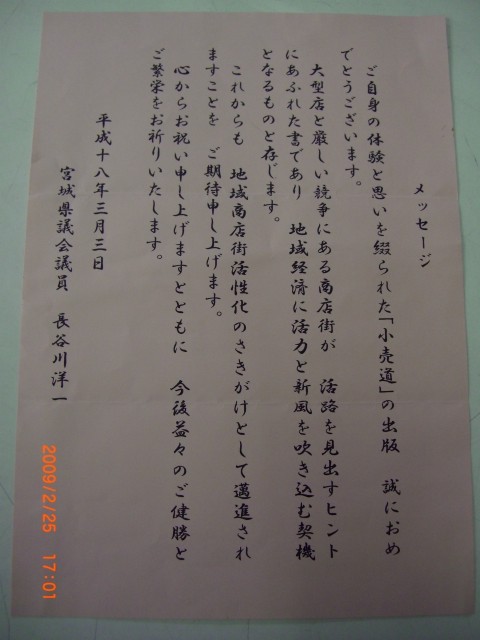 メッセージ
ご自身の体験と思いを綴られた「小売道」の出版　誠におめ
でとうございます。
大型店と厳しい競争にある商店街が　活路を見出すヒント
にあふれた書であり　地域経済に活力と新風を吹き込む契機
となるものと存じます。
これからも　地域商店街活性化のさきがけとして邁進され
ますことを　ご期待申し上げます。
心からお祝い申し上げますとともに　今後益々のご健勝と
ご繁栄をお祈りいたします。
平成十八年三月三日
宮城県議会議員　長谷川洋一
2009/2/25 17:01